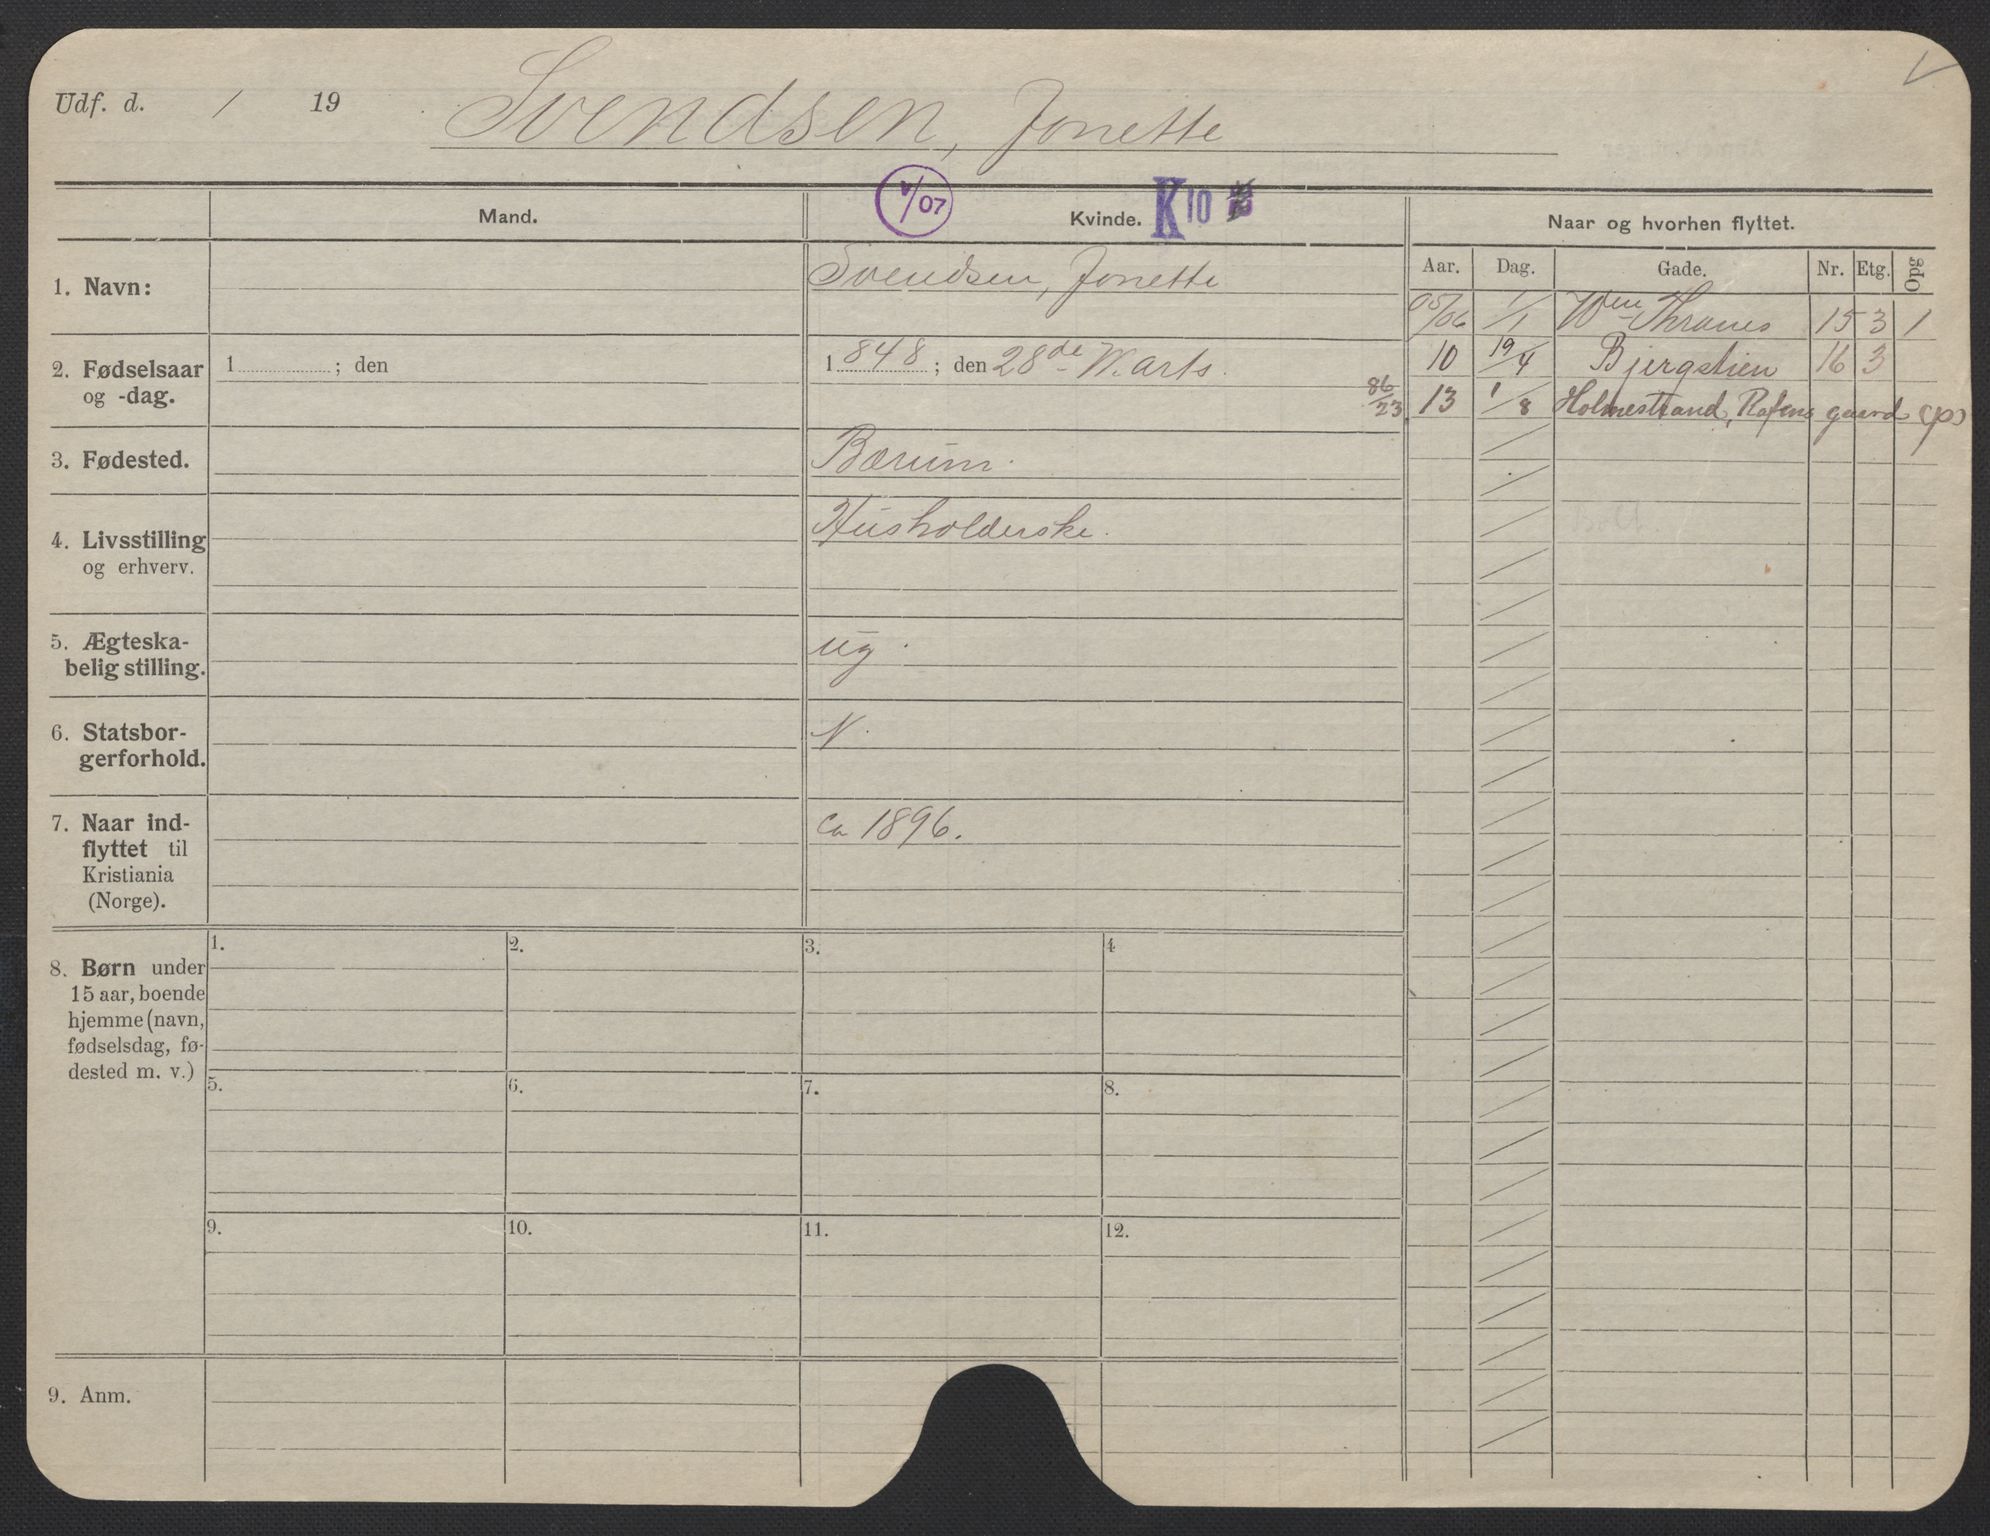 Udf. d. / 19 Svendsen, Jonette
Mand.
/07
Kvinde. K 10
Naar og hvorhen flyttet.
Aar. Dag. Gade. Nr. Etg. Opg
1. Navn:
Svendsen, Jonette
05/06 1/1 Wm Thranes 15 3 1
2. Fødselsaar
og -dag.
1 ; den
1848; den 28de Marts.
10 19/4 Bjergstien 16 3
86/23
13 1/8 Holmestrand, gaard (p)
3. Fødested.
Bærum.
4. Livsstilling
og erhverv.
Husholderske.
5. Ægteska-
belig stilling.
ug.
6. Statsbor-
gerforhold.
N.
7. Naar ind-
flyttet til
Kristiania
(Norge).
ca 1896.
8. Børn under
15 aar, boende
hjemme (navn,
fødselsdag, fø-
dested m. v.)
1. 2. 3. 4
5. 6. 7. 8.
9. 10. 11. 12.
9. Anm.